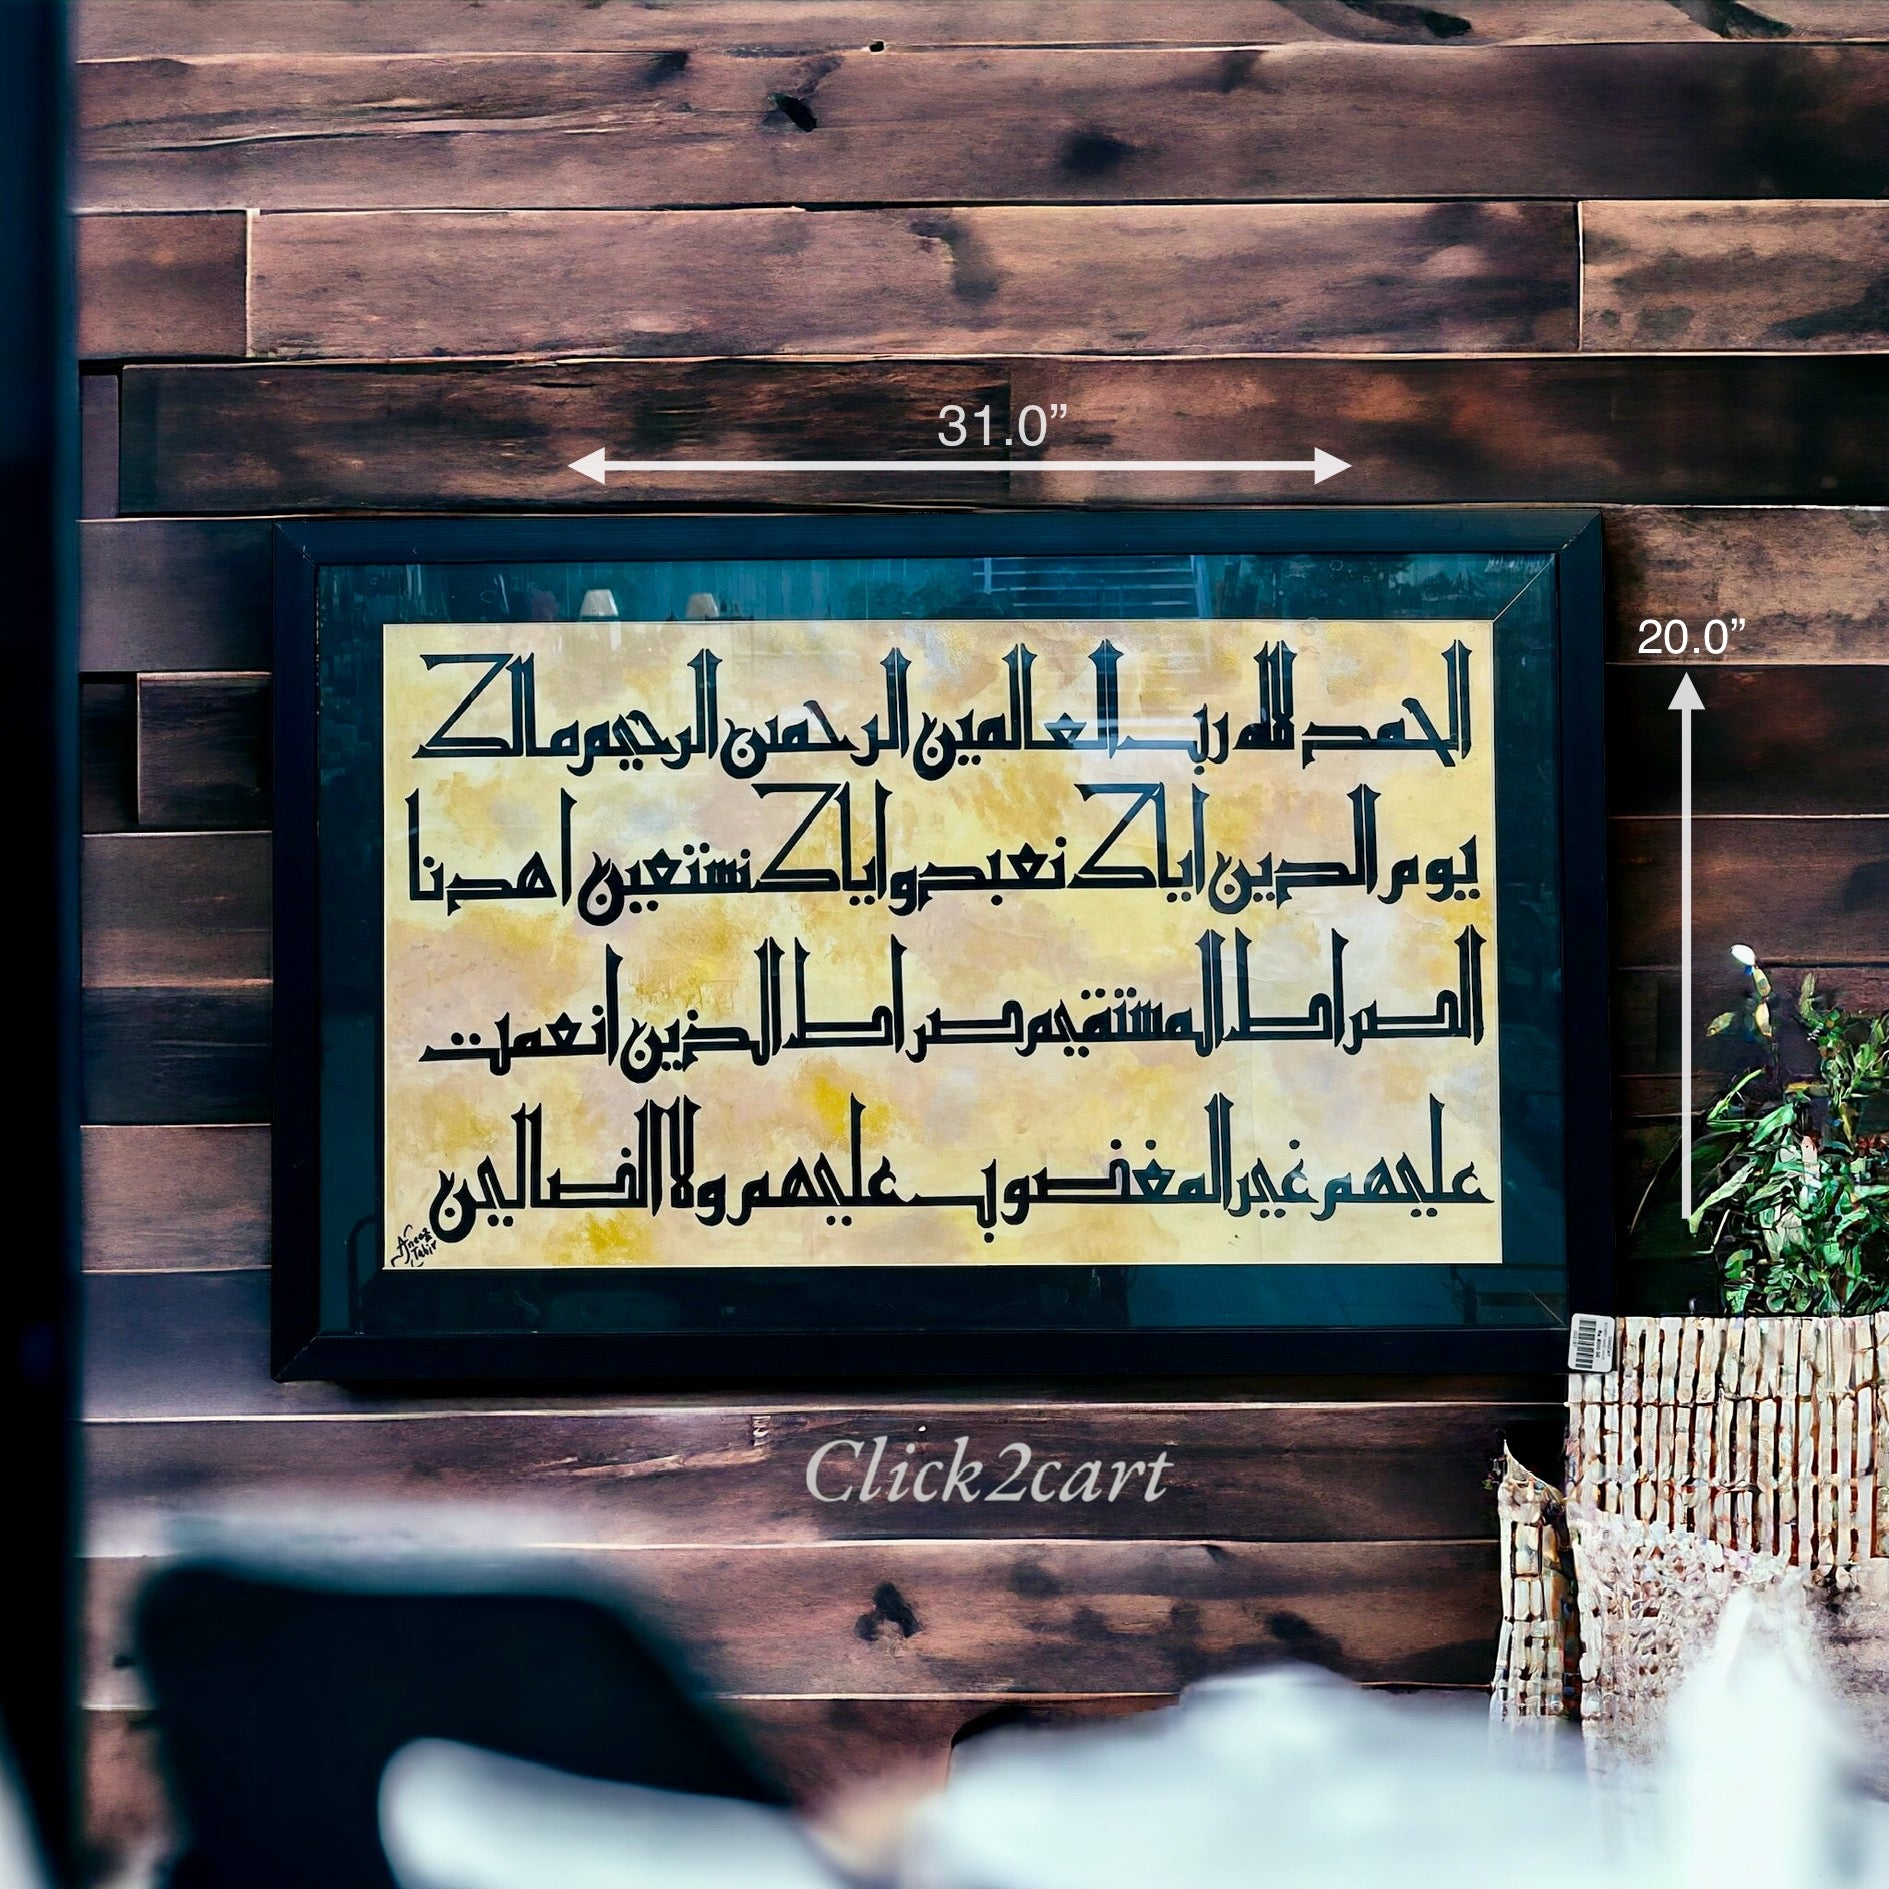 31.0”
20.0”
الحمد لله رب العالمين الرحمن الرحيم مالك
يوم الدين اياك نعبد و اياك نستعين اهدنا
الصراط المستقيم صراط الذين انعمت
عليهم غير المغضوب عليهم ولا الضالين
Aneaz
Tahir
Click2cart